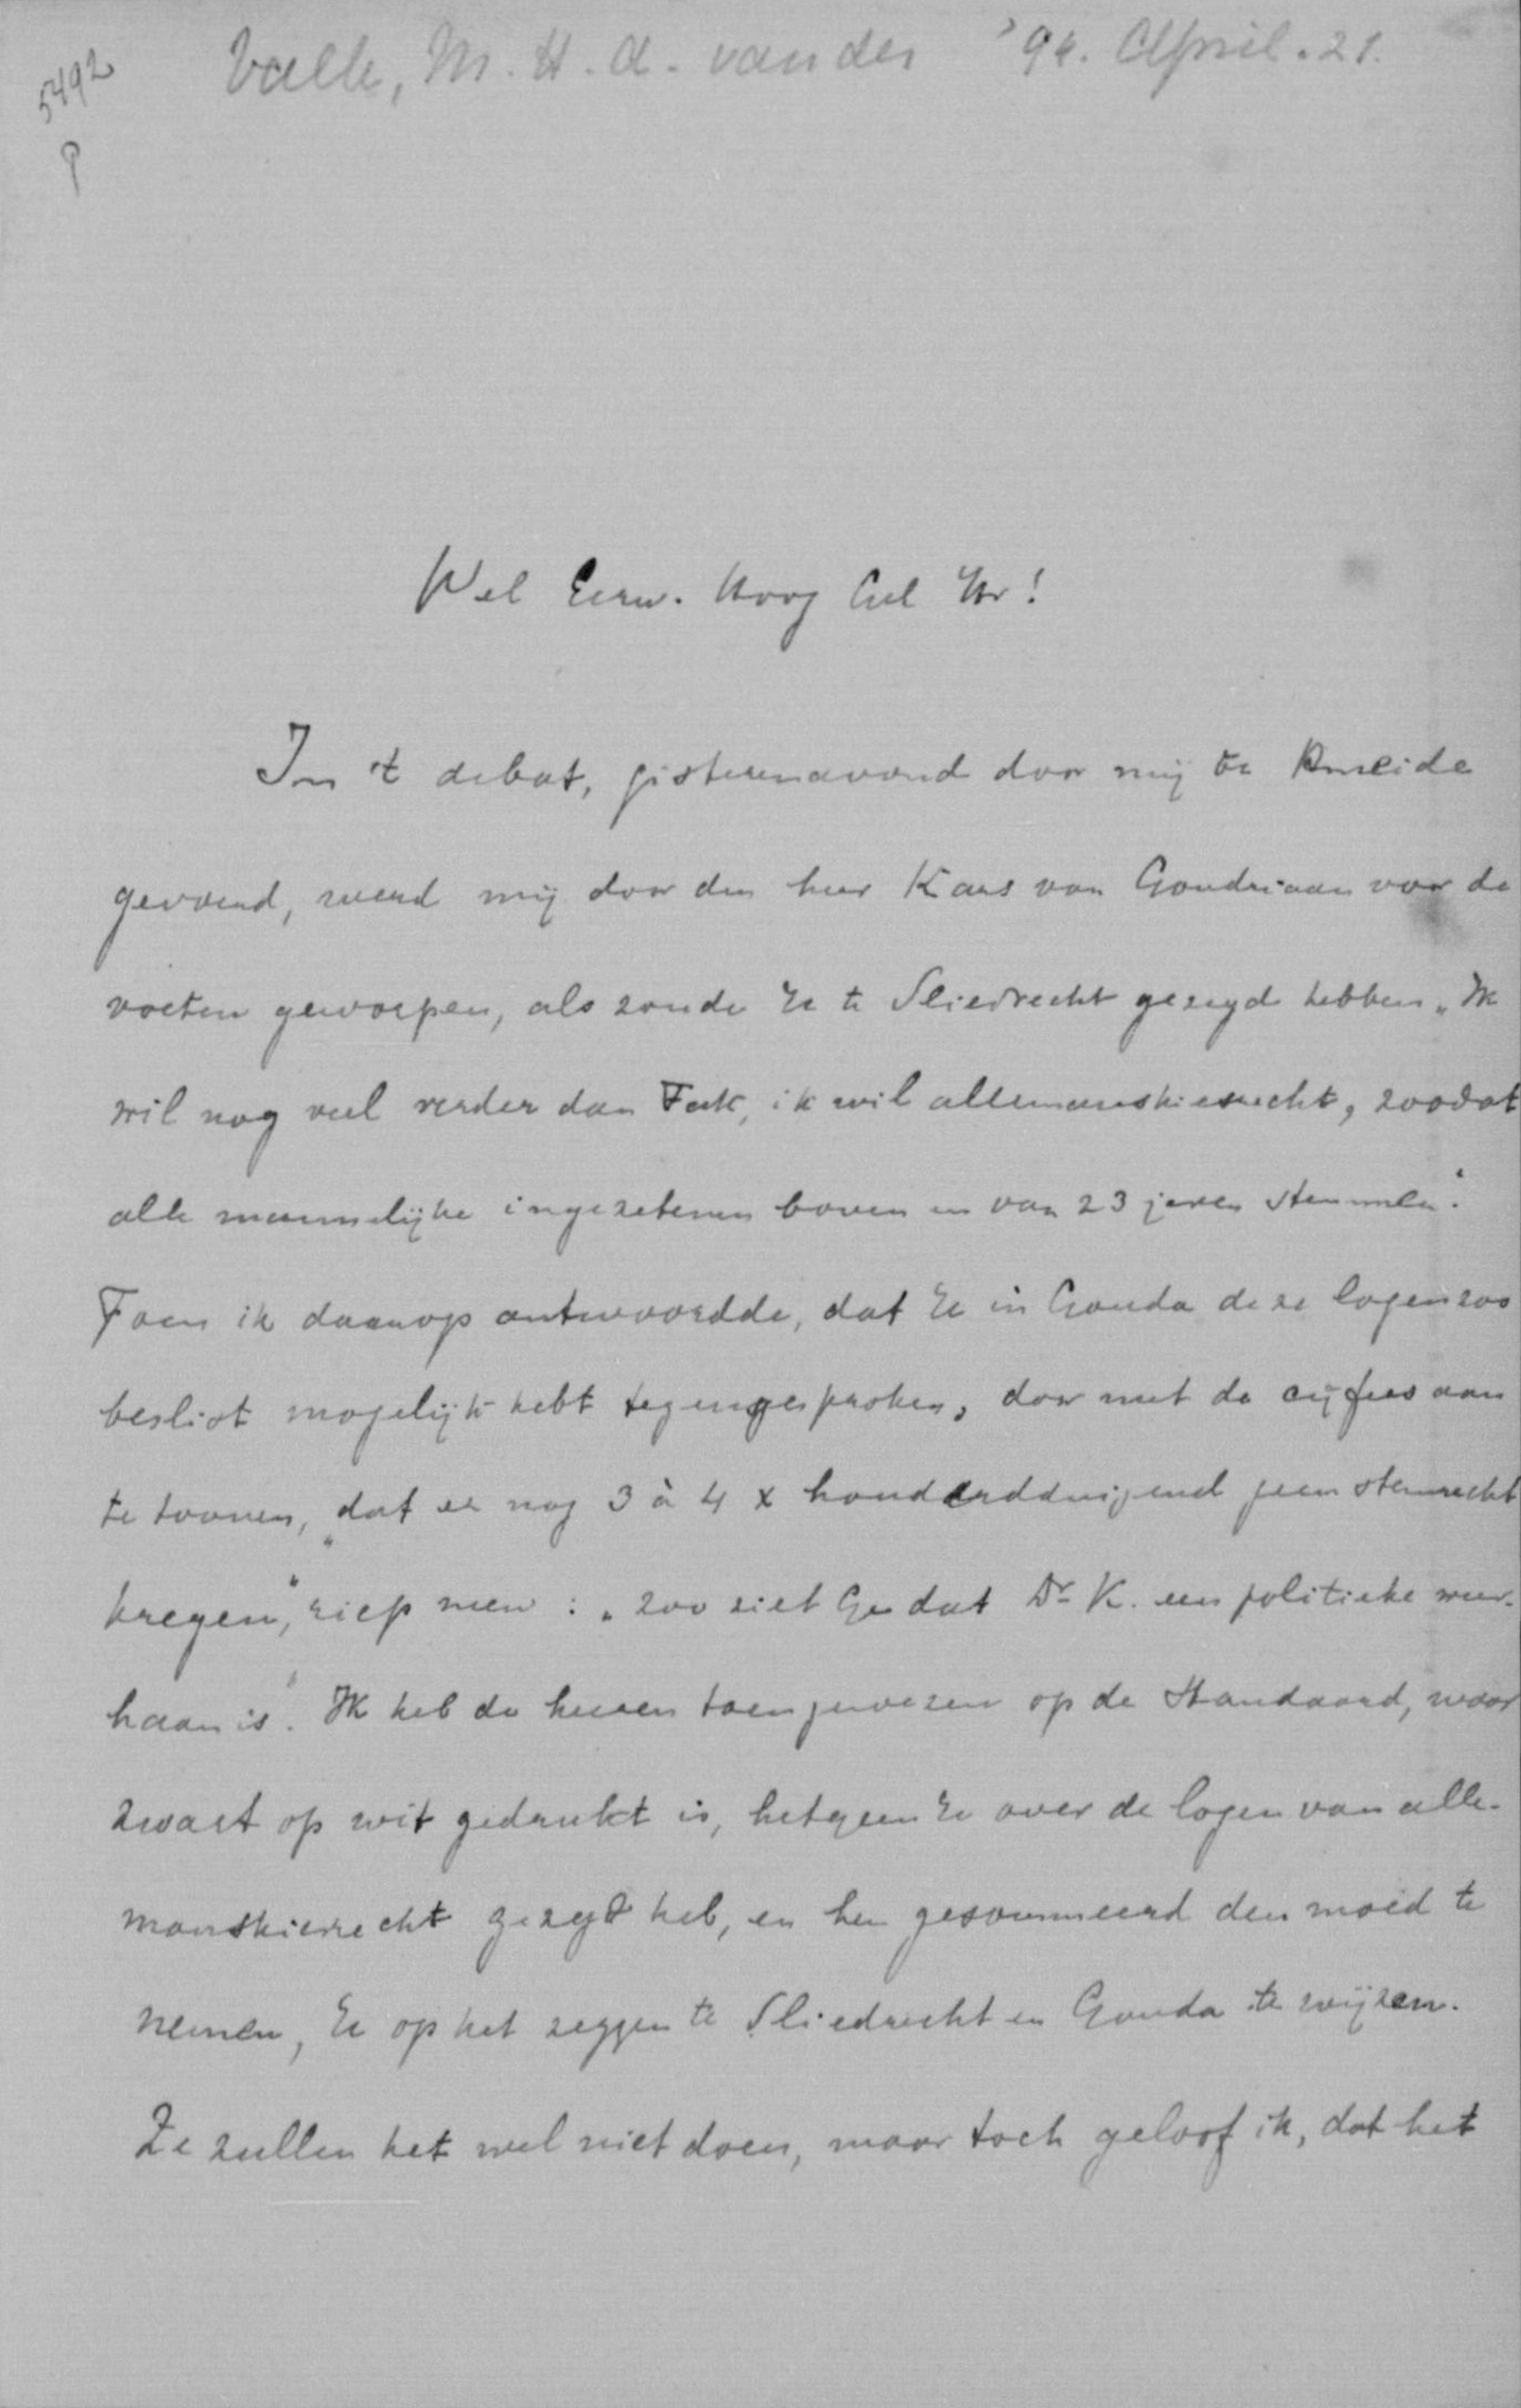 5492
P
Valle, M. H. A. van der '94. April. 21.
Wel Eerw. Hoog Gel Hr!
In 't debat, gisterenavond door mij te Ameide
gevoerd, werd mij door den heer Kars van Goudriaan voor de
voeten geworpen, als zoude Ue te Sliedrecht gezegd hebben „Ik
wil nog veel verder dan Tak, ik wil allemanskiesrecht, zoodat
alle mannelijke ingezetenen boven en van 23 jaren stemmen".
Toen ik daarop antwoordde, dat Ue in Gouda deze logen zoo
beslist mogelijk hebt tegengesproken, door met de cijfers aan
te toonen, „dat er nog 3 à 4 x honderdduizend geen stemrecht
kregen," riep men: „zoo ziet Ge dat Dr K. een politieke weer-
haan is". Ik heb de heeren toen gewezen op de Standaard, waar
zwart op wit gedrukt is, hetgeen Ue over de logen van alle-
manskiesrecht gezegd heb, en hen gesommeerd den moed te
nemen, Ue op het zeggen te Sliedrecht en Gouda te wijzen.
Ze zullen het wel niet doen, maar toch geloof ik, dat het